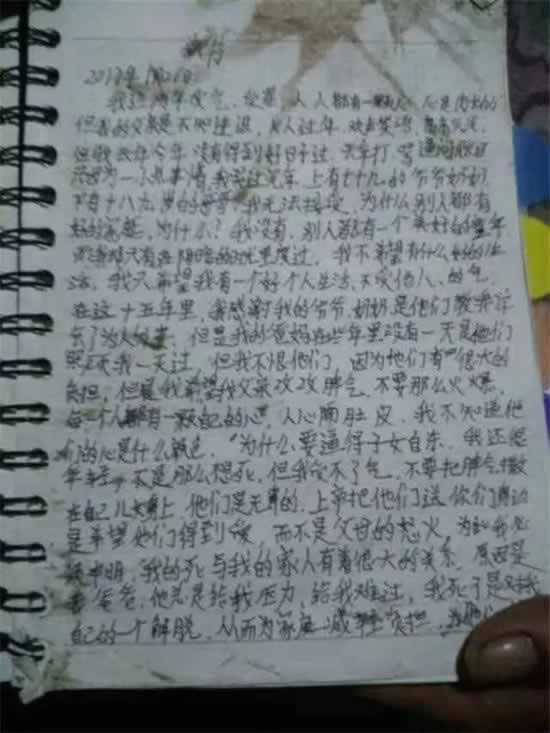 2017年1月21日
我这两年受气、受累,人人都有一颗心,心是肉长的
但我的父亲是不知道退,别人过年,欢声笑语,
但我去年今年,没有得到好日子过,天天打骂
因为一点事情,我 上有七十九的爷爷奶奶
下有十八九岁的 我无法接受,为什么别人都有
好的家庭,为什么?我没有,别人都有一个美好的童年
而我却只有在阴暗的 里度过,我不希望有什么好的生
活,我只希望我有一个好个人生活,不受他人的气,
在这十五年里,我感谢我的爷爷,奶奶是他们教我学
会了为人处事,但是我的爸妈在些年里没有一天是他们
照顾我一天过,但我不恨他们,因为他们有很大的
负担,但是我希望我父亲改改脾气,不要那么火爆,
每一个人都有一颗自己的心,人心隔肚皮,我不知道他
们的心是什么颜色,“为什么要逼得子女自杀,我还很
年轻,不是那么想死,但我受不了气,不要把脾气撒
在自己儿女身上,他们是无辜的,上苍把他们送你们身边
是希望他们得到 爱,而不是父母的怒火,为此我
声明,我的死与我的家人有着很大的关系,原因是
爸爸,他总是给我压力,给我难过,我死了是对我
自己的一个解脱,从而为家庭减轻负担,